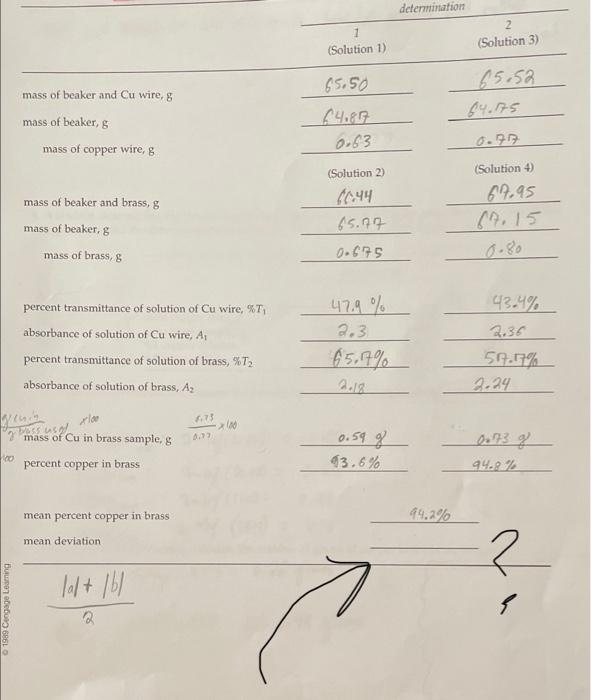 determination
1 2
(Solution 1) (Solution 3)
mass of beaker and Cu wire, g 65.50 65.52
mass of beaker, g 64.87 64.75
mass of copper wire, g 0.63 0.77
(Solution 2) (Solution 4)
mass of beaker and brass, g 66.44 67.95
mass of beaker, g 65.77 67.15
mass of brass, g 0.675 0.80
percent transmittance of solution of Cu wire, %T₁ 47.9 % 43.4%
absorbance of solution of Cu wire, A₁ 2.3 2.36
percent transmittance of solution of brass, %T₂ 65.7% 57.7%
absorbance of solution of brass, A₂ 2.18 2.24
g cu in x100
g brass used
0.73 x100
0.77
mass of Cu in brass sample, g 0.59 g 0.73 g
percent copper in brass 93.6% 94.8%
mean percent copper in brass 94.2%
mean deviation ?
|a|+ |b|
2
© 1989 Cengage Learning